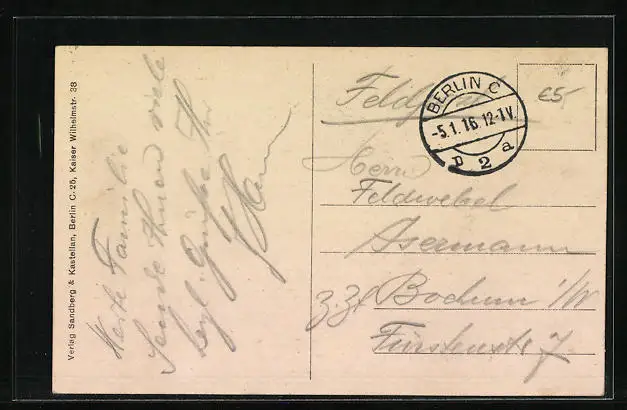 Verlag Sandberg & Kastellan, Berlin C. 25, Kaiser Wilhelmstr. 38
Werte Familie
Sende Ihnen viele
herzl. Grüße Ihr
BERLIN C
-5.1.16. 12-1V.
D 2 a
£5-
Herrn
Feldwebel
Asermann
z. Zt Bochum i/W
Fürstenstr 7